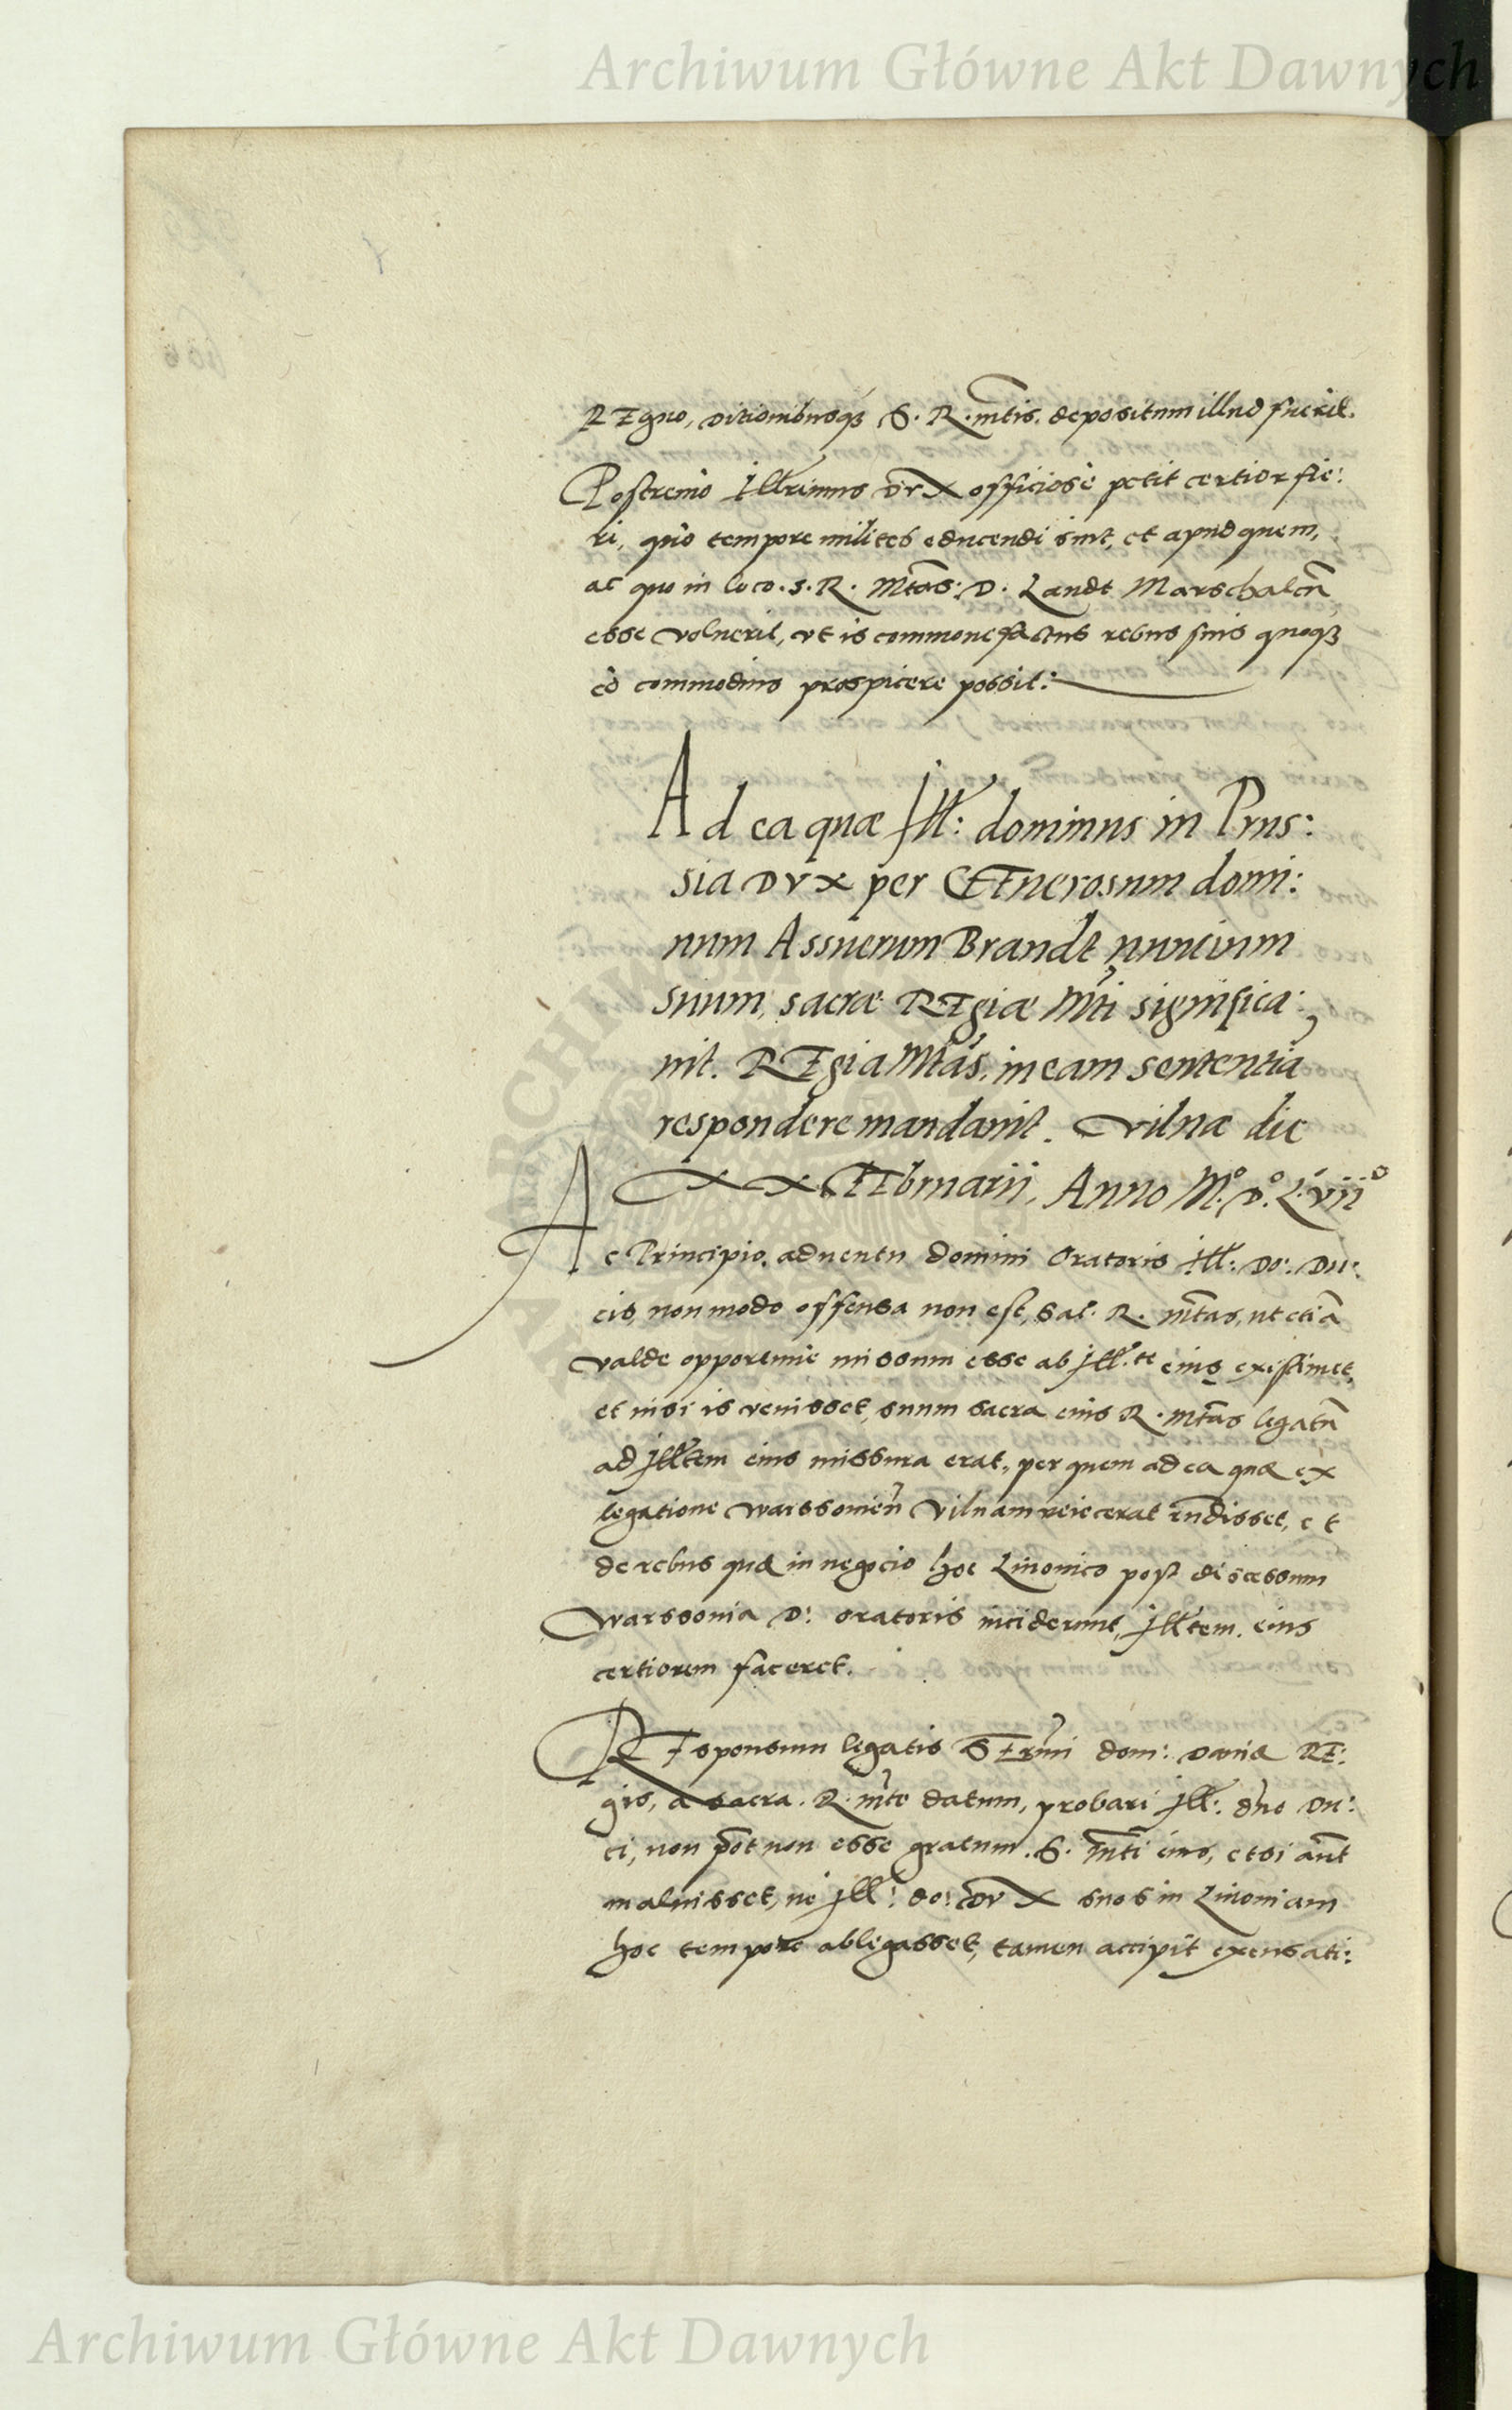 Archiwum Główne Akt Dawnych
REgno, ditionibusq₃ S. R. mtis. depositum illud fuerit.
Postremo Illrimus Dux officiosè petit certior fie:
ri, quo tempore milites educendi sint, et apud quem,
ac quo in loco. S. R. Mtas: D. Landt Marschalcũ
esse voluerit, ut is commonefactus rebus suis quoq₃
eò commodius prospicere possit:
Ad ea quæ Ill: dominus in Prus:
sia Dux per GEnerosum domi:
num Assuerum Brandt nuncium
suum, sacræ REgiæ Mti significa:
uit. REgia Mtas, in eam sententiã
respondere mandauit. Vilnæ die
XX FEbruarii, Anno M.º D.º L.viiº
Ac Principio. aduentu domini Oratoris Ill: Do: Du:
cis, non modo offensa non est, Sac. R. Mtas, ut etiã
valde opportunè missum esse ab Ill.te eius existimet,
et nisi is venisset, suum sacra eius R. Mtas legatũ
ad Illtem eius missura erat, per quem ad ea quæ ex
legatione Warssouien̄ Vilnam reiecerat rñdisset, et
de rebus quæ in negocio hoc Liuonico post discessum
Warssouia D: oratoris inciderunt, Illtem. eius
certiorem faceret.
REsponsum legatis SErmi dom: Daniæ RE:
gis, a sacra. R. mte datum, probari Ill: dno Du:
ci, non pōt non esse gratum. S. Mti eius, etsi aūt
maluisset, ne Ill: do: Dux suos in Liuoniam
hoc tempore ablegasset, tamen accipit excusati:
Archiwum Główne Akt Dawnych